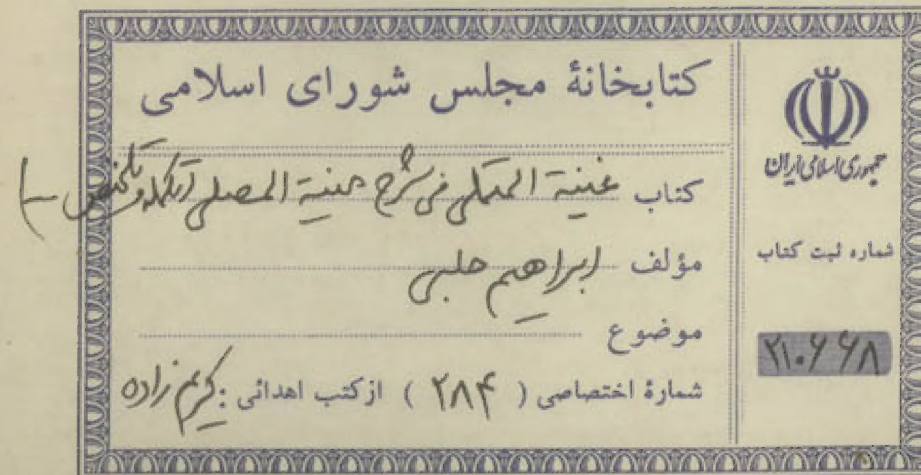 کتابخانهٔ مجلس شورای اسلامی
کتاب غنیة المتملی فی شرح منیة المصلی (تکمله و تلخیص -)
مؤلف ابراهیم حلبی
موضوع
شمارهٔ اختصاصی ( ۲۸۴ ) از کتب اهدائی : کریم زاده
جمهوری اسلامی ایران
شماره ثبت کتاب
۲۱۰۶۶۸